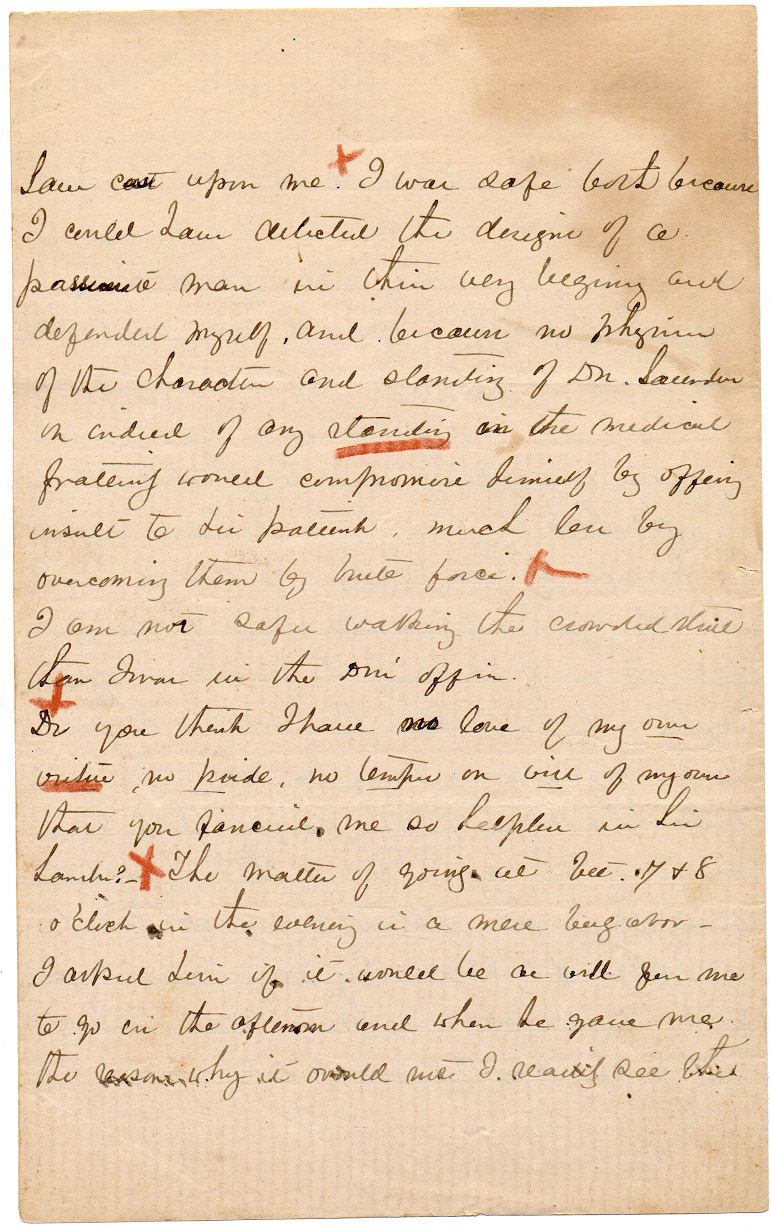 have cast upon me. I was safe both because
I could have detected the designs of a
passionate man in their very begining and
defended myself, and because no physician
of the character and standing of Dr. Saunders
or indeed of any standing in the medical
fraternity would compromise himself by offering
insult to his patients, much less by
overcoming them by brute force.
I am not safer walking the crowded street
than I was in the Drs' office.
Do you think I have no love of my own
virtue, no pride, no temper or will of my own
that you fancied me so helpless in his
hands? - The matter of going at bet. 7 & 8
o'clock in the evening is a mere bugaboo -
I asked him if it would be as well for me
to go in the afternoon and when he gave me
the reasons why it would not I really see